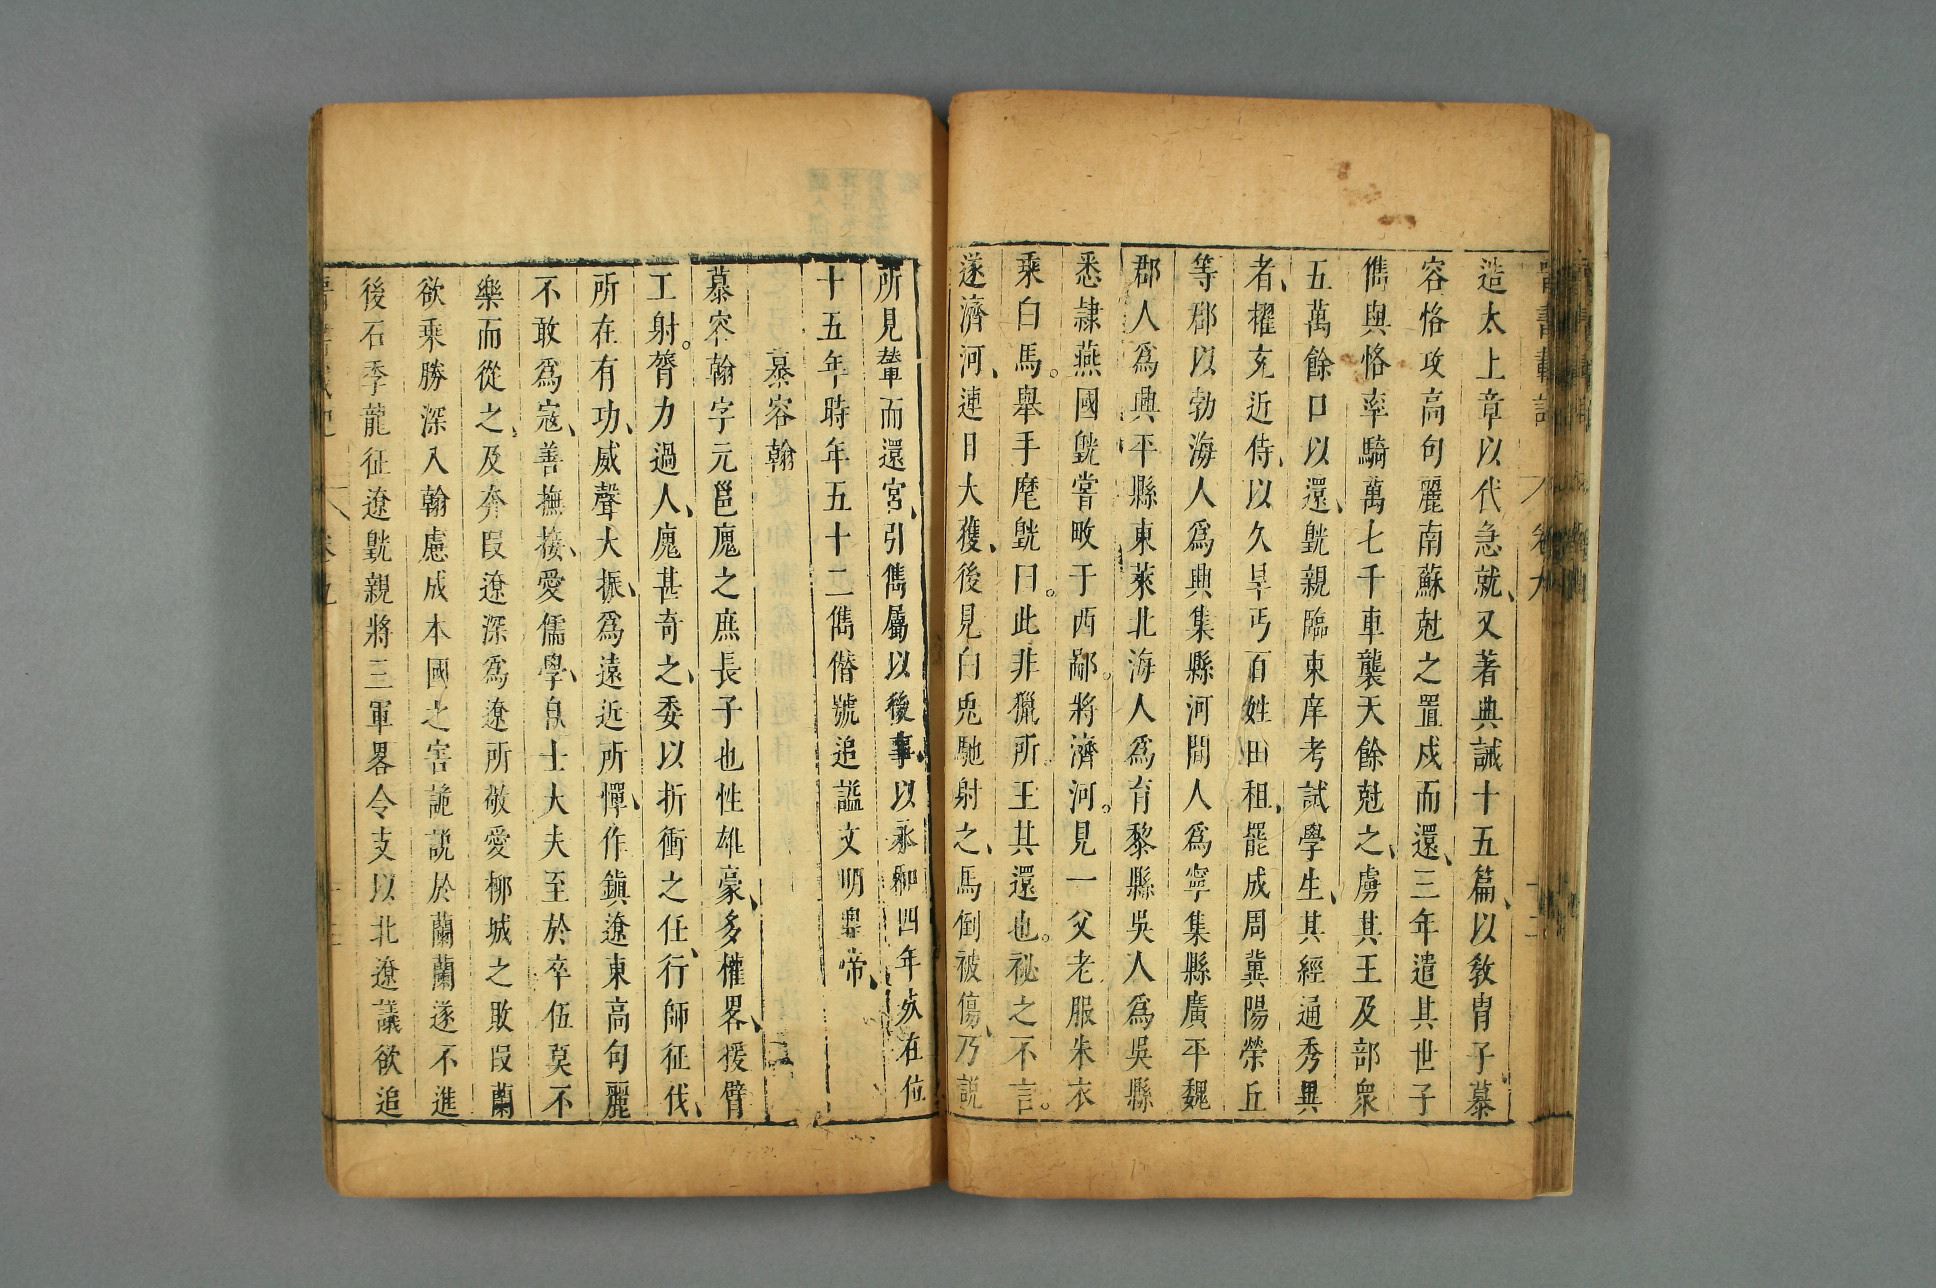 造太上章以代急就又著典誡十五篇以敎胄子慕
容恪攻高句麗南蘇尅之置戍而還三年遣其世子
儁與恪率騎萬七千車襲夫餘尅之虜其王及部衆
五萬餘口以還皝親臨東庠考試學生其經通秀異
者擢充近侍以久旱丐百姓田租罷成周冀陽營丘
等郡以勃海人爲興集縣河間人爲寧集縣廣平魏
郡人爲興平縣東萊北海人爲育黎縣吳人爲吳縣
悉隷燕國皝嘗畋于西鄙將濟河見一父老服朱衣
乘白馬舉手麾皝曰此非獵所王其還也祕之不言
遂濟河連日大獲後見白兎馳射之馬倒被傷乃說
所見輦而還宮引儁屬以後事以永和四年死在位
十五年時年五十二儁僭號追謚文明皇帝
慕容翰
慕容翰字元邕廆之庶長子也性雄豪多權畧援臂
工射膂力過人廆甚奇之委以折衝之任行師征伐
所在有功威聲大振爲遠近所憚作鎭遼東高句麗
不敢爲寇善撫接愛儒學自士大夫至於卒伍莫不
樂而從之及奔段遼深爲遼所敬愛柳城之敗段蘭
欲乘勝深入翰慮成本國之害詭說於蘭蘭遂不進
後石季龍征遼皝親將三軍畧令支以北遼議欲追